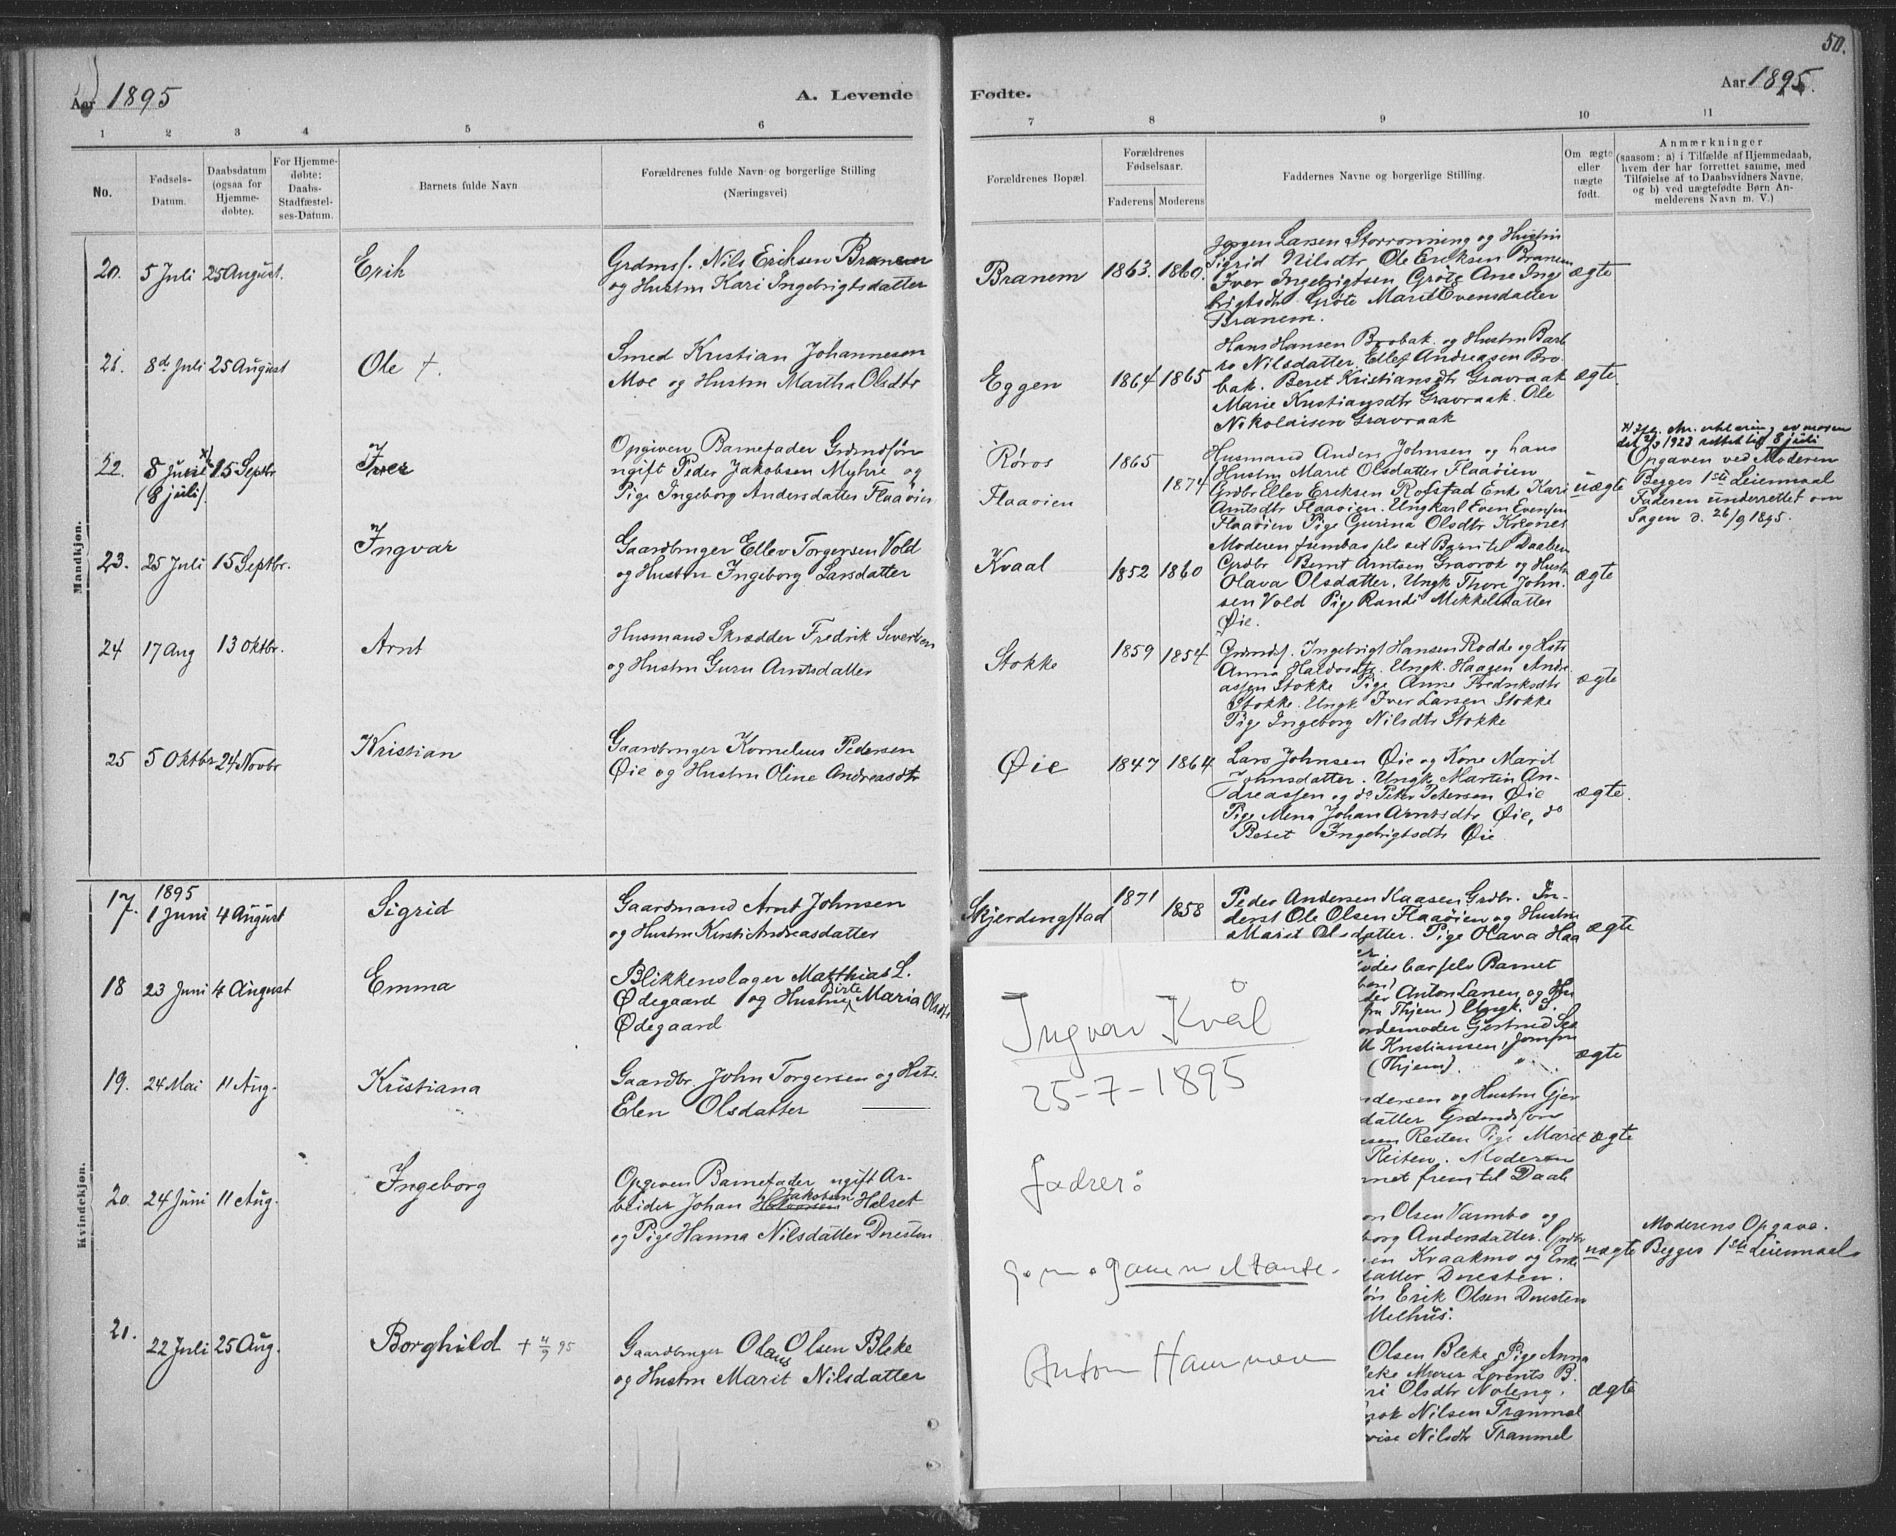 50.
Aar 1895
A. Levende
Fødte.
Aar 1895.
1 2 3 4 5 6
7 8 9 10 11
No.
Fødsels-
Datum.
Daabsdatum
(ogsaa for
Hjemme-
døbte).
For Hjemme-
døbte:
Daabs-
Stadfæstel-
ses-Datum.
Barnets fulde Navn
Forældrenes fulde Navn og borgerlige Stilling
(Næringsvei)
Forældrenes Bopæl.
Forældrenes
Fødselsaar.
Faderens Moderens
Faddernes Navne og borgerlige Stilling.
Om ægte
eller
uægte
født.
Anmærkninger
(saasom: a) i Tilfælde af Hjemmedaab,
hvem der har forrettet samme, med
Tilføielse af to Daabsvidners Navne,
og b) ved uægtefødte Børn An-
melderens Navn m. V.)
Mandkjøn.
20. 5 Juli 25 August. Erik
Grdms. Nils Eriksen Branem
og Hustru Kari Ingebrigtsdatter
Branem 1863. 1860.
Jørgen Larsen Storrønning og Hustru
Sigrid Nilsdtr Ole Eriksen Branem
Iver Ingebrigtsen Grøte Ane Inge
brigtsdtr Grøte Marit Evensdatter
Branem.
ægte
21. 8de Juli 25 August Ole +.
Smed Kristian Johannesen
Moe og Hustru Martha Olsdtr
Eggen 1864 1865
Hans Hansen Brobak. og Hustru Barb
ro Nilsdatter, Ellef Andreasen Bro-
bak. Beret Kristiansdtr Gravraak
Marie Kristiansdtr Gravraak. Ole
Nikolaisen Gravraak
ægte.
22. 8 Juni x) 15 Septbr Iver
(8 juli).
Opgiven Barnefader Grdmdsøn
ugift Peder Jakobsen Myhre og
Pige Ingeborg Andersdatter Flaaøien
Røros 1865
Flaaøien 1874
Husmand Anders Johnsen og hans
Hustru Marit Olsdatter Flaaøien
Grdbr Ellev Eriksen Rofstad Enke Kari
Arntsdtr Flaaøien. Ungkarl Even Evensen
Flaaøien Pige Gurina Olsdtr
Moderen frembar selv sit Barn til Daaben
uægte
det 2/3 1923 rettet til 8 juli
Opgaven ved Moderen
Begges 1ste Leiermaal
Faderen underrettet om
Sagen d. 26/9 1895.
23. 25 Juli 15 Septbr. Ingvar
Gaardbruger Ellev Torgersen Vold
og Hustru Ingeborg Larsdatter
Kvaal 1852 1860
Grdbr Bernt Arntsen Gravrok og Hustru
Olava Olsdatter. Ungk Thore John-
sen Vold Pige Randi Mikkelsdatter
Øie.
ægte
24 17 Aug 13 Oktbr. Arnt
Husmand Skrædder Fredrik Sivertsen
og Hustru Guru Arntsdatter
Stokke 1859 1854
Grdmds. Ingebrigt Hansen Rodde og Hstr
Anna Haldosdtr. Ungk. Haagen Andre
assen Stokke Pige Anne Fredriksdtr
Stokke. Ungk Iver Larsen Stokke
Pige Ingeborg Nilsdtr Stokke
ægte
25 5 Oktbr 24 Novbr Kristian
Gaardbruger Kornelius Pedersen
Øie og Hustru Oline Andreasdtr
Øie 1847 1864
Lars Johnsen Øie og Kone Marit
Johnsdatter. Ungk. Martin An-
dreassen og do Peter Petersen Øie
Pige Mena Johan Arntsdtr Øie, do
Beret Ingebrigtsdtr Øie
ægte.
Kvindekjøn.
1895
17. 1 Juni 4 August Sigrid
Gaardmand Arnt Johnsen
og Hustru Kirsti Andreasdatter
Skjerdingstad 1871 1858
Peder Andersen Kaasen Grdbr. In-
derst Ole Olsen Flaaøien og Hustru
Marit Olsdatter. Pige Olava Haa
ægte
18 23 Juni 4 August Emma
Blikkenslager Matthias L.
Ødegaard og Hustru Birte Maria Olsdtr
Ødegaard
oder bar selv Barnet
der Anton Larsen og Hu
fra Thjem) Ungk. S.
ordemoder Gjertrud
Kristiansen, Jomfru
(Thjem).
ægte
19. 24 Mai 11 Aug. Kristiana
Gaardbr. John Torgersen og Hstr.
Elen Olsdatter
ndersen og Hustru Gjer
datter Grdmdsøn
sen Reiten Pige Marit
Reiten. Moderen
rnet frem til Daab
ægte
20. 24 Juni 11 Aug. Ingeborg
Opgiven Barnefader ugift Ar-
beider Johan Halvorsen Jakobsen Halset
og Pige Hanna Nilsdatter Duesten
Olsen Varmbo og
borg Andersdatter. Grdbr
en Kraakmo og Enke
datter Duesten.
Erik Olsen Duesten
Melhus.
uægte
Moderens Opgave.
Begges 1ste Leiermaal
21. 22 Juli 25 Aug. Borghild + 4/9 95
Gaardbruger Olaus Olsen Bleke
og Hustru Marit Nilsdatter
Olsen Bleke, Pige Anna
leke Murer Lorents B.
ri Olsdtr Noteng.
Nilsen Tranmel
Nilsdtr Tranmel
ægte
Ingvar Kvål
25-7-1895
fadrer:
g.m. gammeltante.
Anton Hammeren